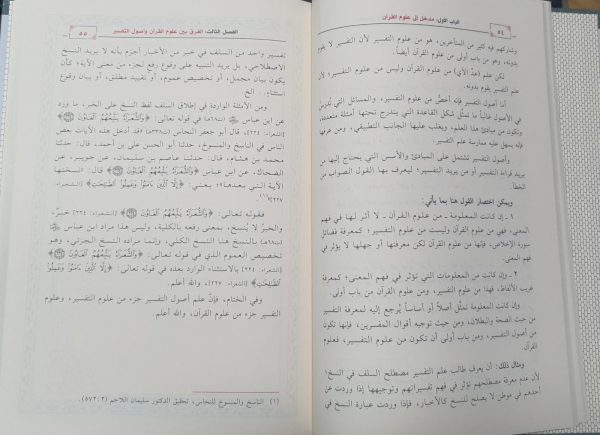 ٥٤
الباب الأول: مدخل إلى علوم القرآن
وشاركهم فيه كثير من المتأخرين، هو من علوم التفسير لأن التفسير لا يقوم
بدونه، وهو من باب أولى من علوم القرآن أيضاً.
لكن علم (عدّ الآي) من علوم القرآن وليس من علوم التفسير، لأن
التفسير يقوم بدونه.
أما أصول التفسير فإنه أخصُّ من علوم التفسير، والمسائل التي تُدرس
في الأصول غالباً ما تمثِّل شكل القاعدة التي يندرج تحتها أمثلة متعددة،
وتكون من مبادئ هذا العلم، ويغلب عليها الجانب التطبيقي، ومن عرفها
فإنه يسهل عليه ممارسة علم التفسير.
وأصول التفسير تشتمل على المبادئ والأسس التي يحتاج إليها من
يريد قراءة التفسير، أو من يريد التفسير؛ ليعرف بها القول الصواب من
الخطأ.
ويمكن اختصار القول هنا بما يأتي:
١ ـ إن كانت المعلومة ـ من علوم القرآن ـ لا أثر لها في فهم
المعنى، فهي من علوم القرآن وليست من علوم التفسير؛ كمعرفة فضائل
سورة الإخلاص، فإنها من علوم القرآن لكن معرفتها أو جهلها لا يؤثر في
فهم المعنى.
٢ ـ وإن كانت من المعلومات التي تؤثر في فهم المعنى؛ كمعرفة
غريب الألفاظ، فهذا من علوم التفسير، ومن علوم القرآن من باب أولى.
وإن كانت المعلومة تمثِّل أصلاً أو أساساً يُرجع إليه لمعرفة التفسير
من حيث الصحة والبطلان، ومن حيث توجيه أقوال المفسرين، فإنها تكون
من أصول التفسير، ومن باب أولى أن تكون من علوم التفسير، فعلوم
القرآن.
ومثال ذلك: أن يعرف طالب علم التفسير مصطلح السلف في النسخ؛
لأن عدم معرفة مصطلحهم يؤثر في فهم تفسيراتهم وتوجيهها إذا وردت عن
أحدهم في موطن لا يصلح للنسخ كالأخبار، فإذا وردت عبارة النسخ في
الفصل الثالث: الفرق بين علوم القرآن وأصول التفسير
٥٥
تفسير واحد من السلف في خبر من الأخبار أجزم بأنه لا يريد النسخ
الاصطلاحي، بل يريد التنبيه على وقوع رفع لجزءٍ من معنى الآية؛ كأن
يكون بيان مجمل، أو تخصيص عموم، أو تقييد مطلق، أو بيان وقوع
استثناء.. الخ
ومن الأمثلة الواردة في إطلاق لفظ النسخ على الخبر، ما ورد
عن ابن عباس (ت٦٨هـ) في قوله تعالى: ﴿وَالشُّعَرَاءُ يَتَّبِعُهُمُ الْغَاوُونَ﴾
[الشعراء: ٢٢٤]، قال أبو جعفر النحاس (ت٣٣٨هـ): «قد أدخل هذه الآيات بعض
الناس في الناسخ والمنسوخ، حدثنا أبو الحسن علي بن أحمد، قال: حدثنا
محمد بن هشام، قال: حدثنا عاصم بن سليمان، عن جويبر، عن
الضحاك، عن ابن عباس ﴿وَالشُّعَرَاءُ يَتَّبِعُهُمُ الْغَاوُونَ﴾ قال: «نسختها
الآية التي بعدها»؛ يعني: ﴿إِلَّا الَّذِينَ آمَنُوا وَعَمِلُوا الصَّالِحَاتِ﴾ [الشعراء:
٢٢٧](١)
فقوله تعالى: ﴿وَالشُّعَرَاءُ يَتَّبِعُهُمُ الْغَاوُونَ﴾ [الشعراء: ٢٢٤] خبرٌ،
والخبرُ لا يُنسخ، بمعنى رفعه بالكلية، وليس هذا مراد ابن عباس
(ت٦٨هـ) بالنسخ هنا النسخ الكلي، وإنما مراده النسخ الجزئي، وهو
تخصيص العموم الذي في قوله تعالى: ﴿وَالشُّعَرَاءُ يَتَّبِعُهُمُ الْغَاوُونَ﴾
[الشعراء: ٢٢٤] بالاستثناء الوارد بعده في قوله تعالى: ﴿إِلَّا الَّذِينَ آمَنُوا وَعَمِلُوا
الصَّالِحَاتِ﴾ [الشعراء: ٢٢٧]، والله أعلم.
وفي الختام، فإنَّ علم أصول التفسير جزء من علوم التفسير، وعلوم
التفسير جزء من علوم القرآن، والله أعلم.
(١) الناسخ والمنسوخ للنحاس، تحقيق الدكتور سليمان اللاحم (٢: ٥٧٢).